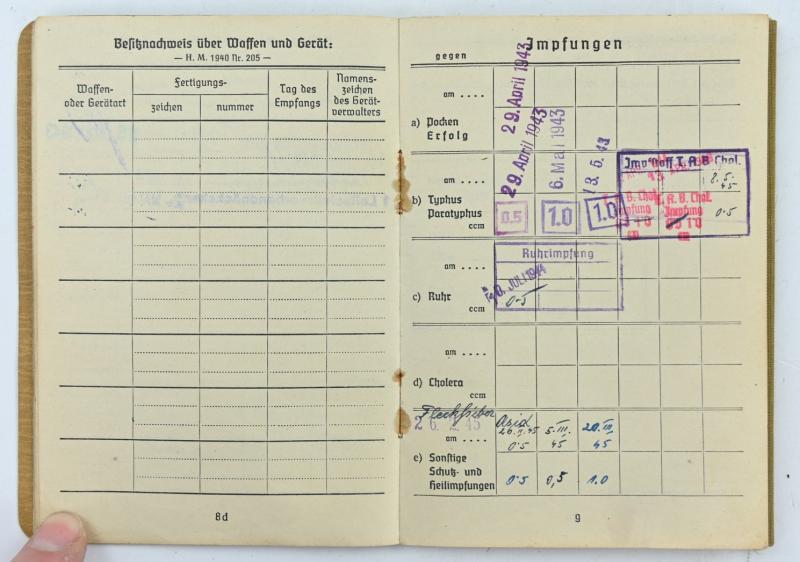 Besitznachweis über Waffen und Gerät:
— H. M. 1940 Nr. 205 —
Waffen-
oder Gerätart
Fertigungs-
zeichen
nummer
Tag des
Empfangs
Namens-
zeichen
des Gerät-
verwalters
8d
Impfungen
gegen
am ....
a) Pocken
Erfolg
29. April 1943
29. April 1943
6. Mai 1943
13. 5. 43
am ....
b) Typhus
Paratyphus
ccm
0.5
1.0
1.0
Impfstoff T. A. B. Chol.
8.5.
45
T. A. B. Chol.
Impfung
0·5
Ruhrimpfung
am ....
JULI 1944
0·5
c) Ruhr
ccm
am ....
d) Cholera
ccm
Fleckfieber
2 6. 2. 45
am ....
26.II.45
0·5
5.III.
45
20.III.
45
e) Sonstige
Schutz- und
Heilimpfungen
0·5
0,5
1.0
9